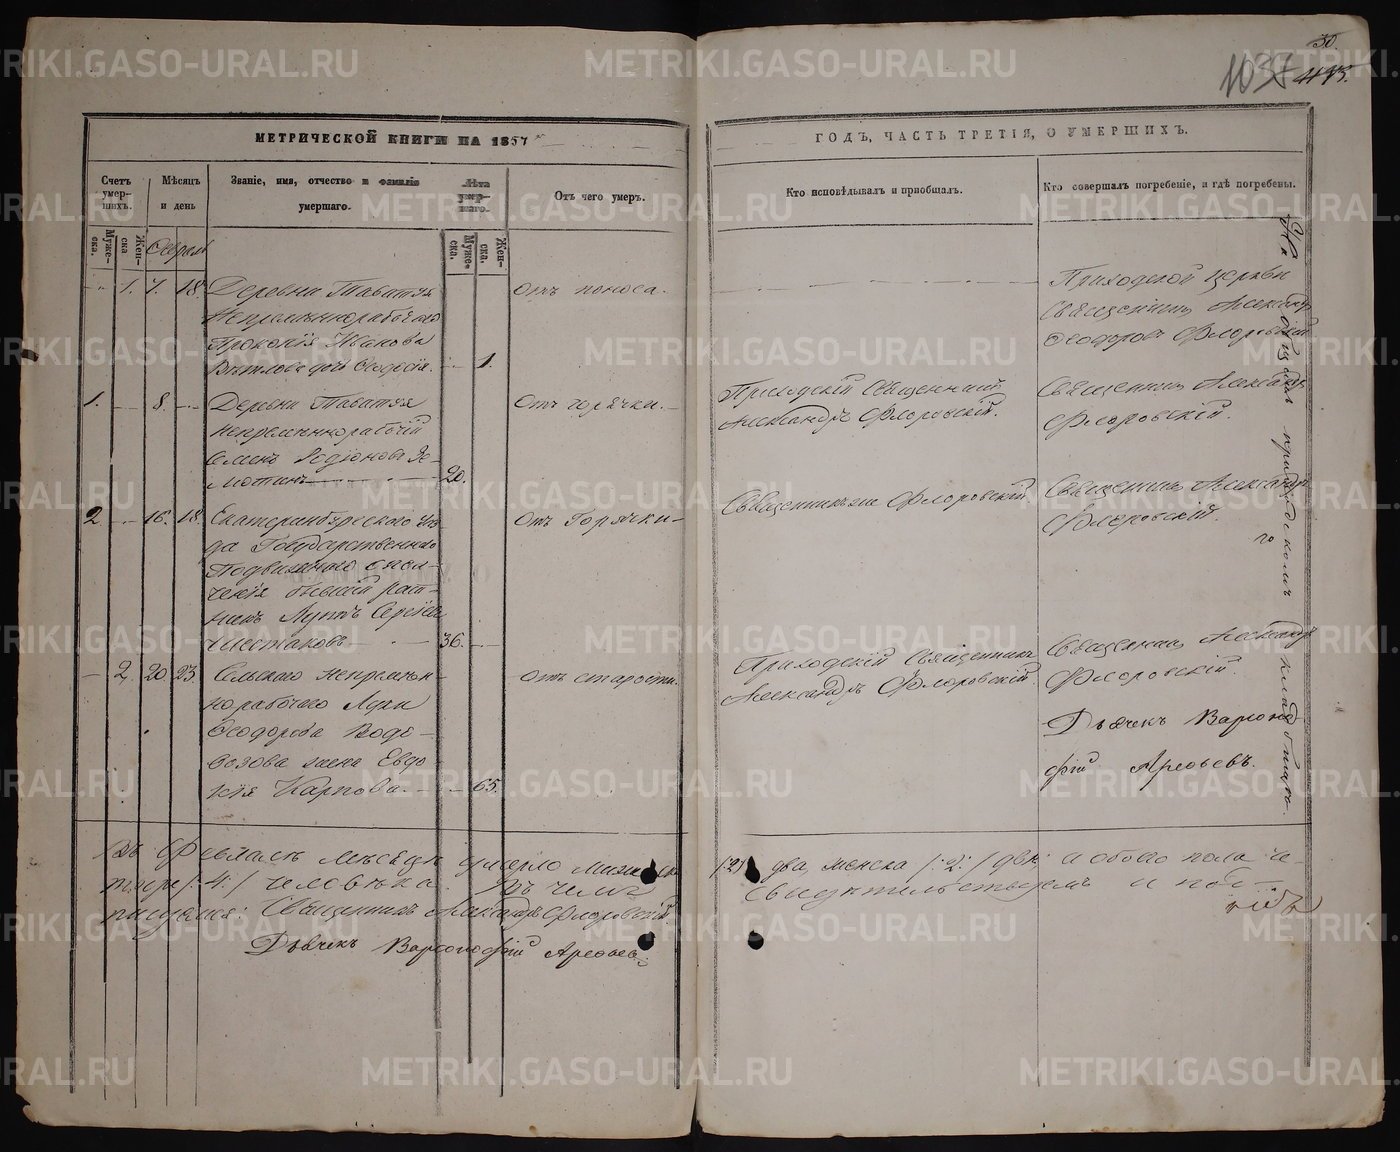 30.
1037 1193.
МЕТРИЧЕСКОЙ КНИГИ НА 1857
ГОДЪ, ЧАСТЬ ТРЕТІЯ, О УМЕРШИХЪ.
Счетъ умер-шихъ.
Муже-ска.
Жен-ска
Мѣсяцъ и день
Званіе, имя, отчество и фамилія умершаго.
Лѣта умер-шаго.
Муже-ска.
Жен-ска.
Отъ чего умеръ.
Кто исповѣдывалъ и приобщалъ.
Кто совершалъ погребеніе, и гдѣ погребены.
Февраль
1. 7. 18. Деревни Таватуя
Непремѣннорабочаго
Прокопія Іванова
Вѣтлова дочь Феодосія. 1.
отъ поноса.
Приходской церкви
Священникъ Александръ
Феодоровъ Флоровскій
1. 8. Деревни Таватуя
непремѣннорабочій
Семенъ Родіоновъ
20.
Отъ горячки.
Приходскій Священникъ
Александръ Флоровскій.
Священникъ Александръ
Флоровскій.
2 16. 18. Екатеринбургскаго Уѣз-
да Государственнаго
Подвижнаго опол-
ченія бывшій рат-
никъ Лупъ Сергіевъ
Шестаковъ 36.
отъ Горячки
Священникъ Флоровскій.
Священникъ Александръ
Флоровскій.
2. 20 23. Сельскаго Непремѣн-
норабочаго Луки
Феодорова Водо-
возова жена Евдо-
кія Карпова. 65.
отъ старости.
Приходскій Священникъ
Александръ Флоровскій.
Священникъ Александръ
Флоровскій.
Дьячекъ Варсоно-
фій Арефьевъ.
На общемъ приходскомъ кладбищѣ.
Въ Февралѣ мѣсяцѣ умерло
/:2:/ два, женска /:2:/ двѣ; а обоего пола че-
тыре /:4:/ человѣка. Въ чемъ
свидѣтельствуемъ и под-
писуемся: Священникъ Александръ Флоровскій
Дьячекъ Варсонофій Арефьевъ
METRIKI.GASO-URAL.RU